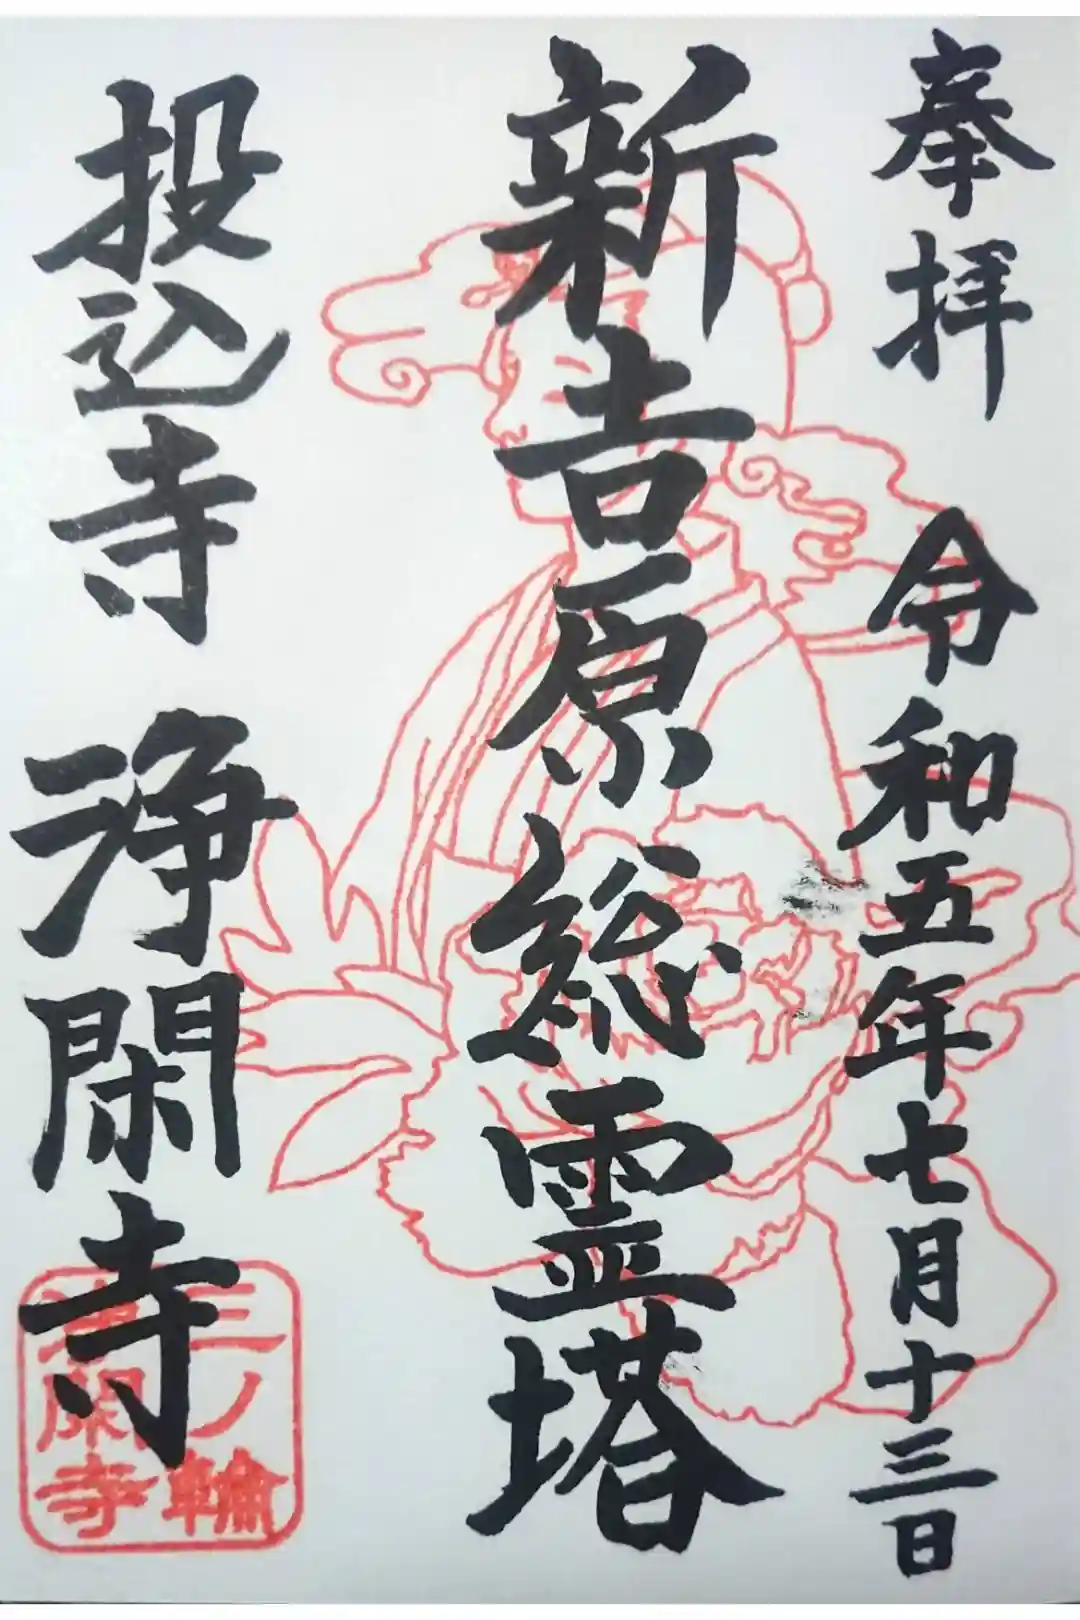 奉拝　令和五年七月十三日
新吉原総霊塔
投込寺　浄閑寺
三ノ輪
浄閑寺